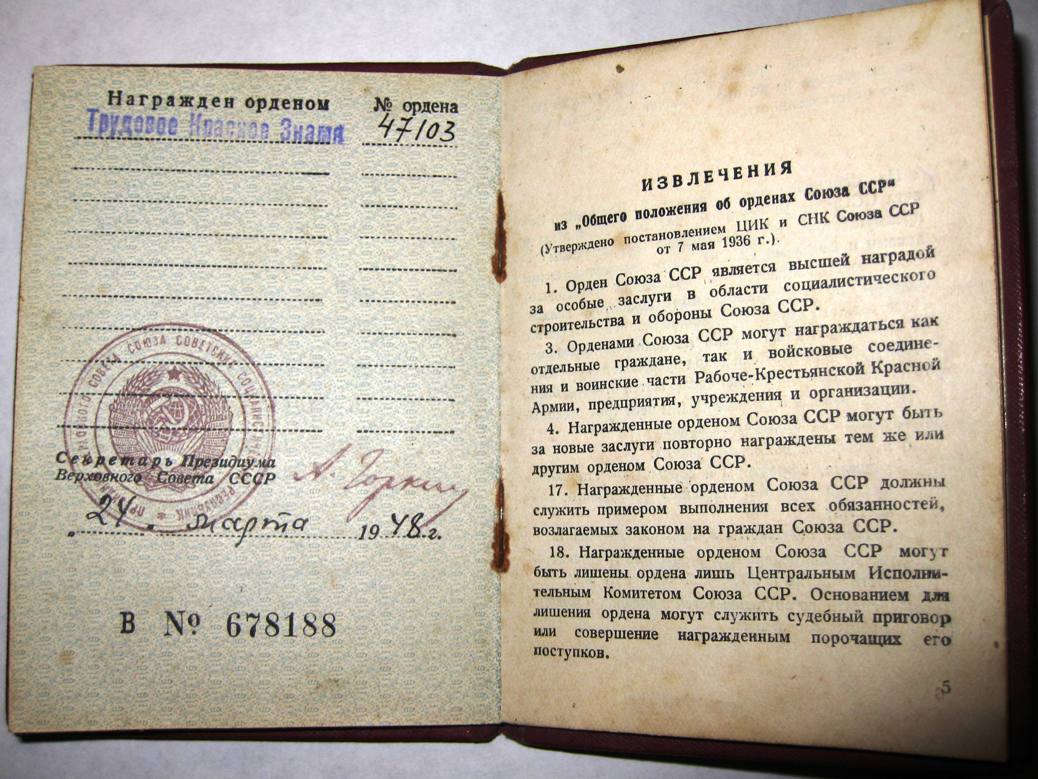 Награжден орденом № ордена
Трудовое Красное Знамя 47103
СОВЕТА СОЮЗА СОВЕТСКИХ
Секретарь Президиума
Верховного Совета СССР А. Горкин
„24“ марта 1948 г.
В № 678188
ИЗВЛЕЧЕНИЯ
из „Общего положения об орденах Союза ССР“
(Утверждено постановлением ЦИК и СНК Союза ССР
от 7 мая 1936 г.).
1. Орден Союза ССР является высшей наградой
за особые заслуги в области социалистического
строительства и обороны Союза ССР.
3. Орденами Союза ССР могут награждаться как
отдельные граждане, так и войсковые соедине-
ния и воинские части Рабоче-Крестьянской Красной
Армии, предприятия, учреждения и организации.
4. Награжденные орденом Союза ССР могут быть
за новые заслуги повторно награждены тем же или
другим орденом Союза ССР.
17. Награжденные орденом Союза ССР должны
служить примером выполнения всех обязанностей,
возлагаемых законом на граждан Союза ССР.
18. Награжденные орденом Союза ССР могут
быть лишены ордена лишь Центральным Исполни-
тельным Комитетом Союза ССР. Основанием для
лишения ордена могут служить судебный приговор
или совершение награжденным порочащих его
поступков.
5